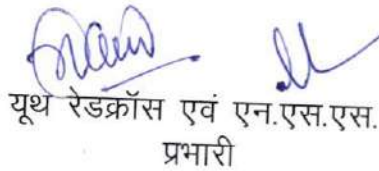 यूथ रेडक्रॉस एवं एन.एस.एस.
प्रभारी